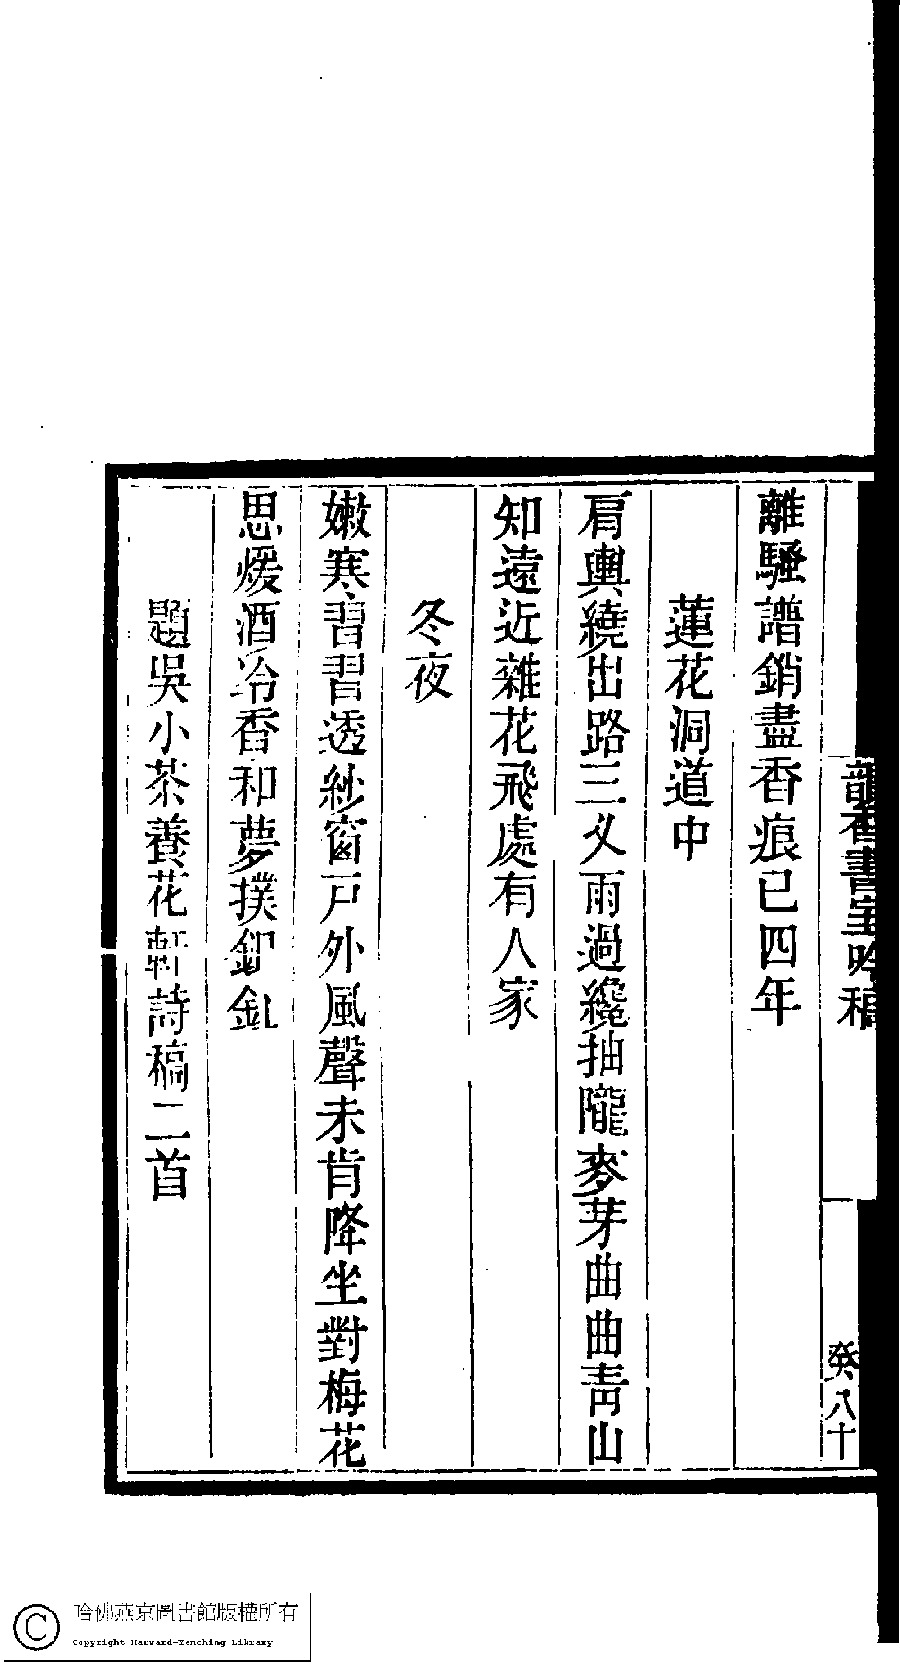 韻香書室吟稿
癸八十
離騷譜銷盡香痕已四年
蓮花洞道中
肩輿繞出路三乂雨過纔抽隴麥芽曲曲靑山
知遠近雜花飛處有人家
冬夜
嫩寒習習透紗窗戸外風聲未肯降坐對梅花
思煖酒冷香和夢撲釦釭
題吳小茶養花軒詩稿二首
哈佛燕京圖書館版權所有
Copyright Harvard-Yenching Library